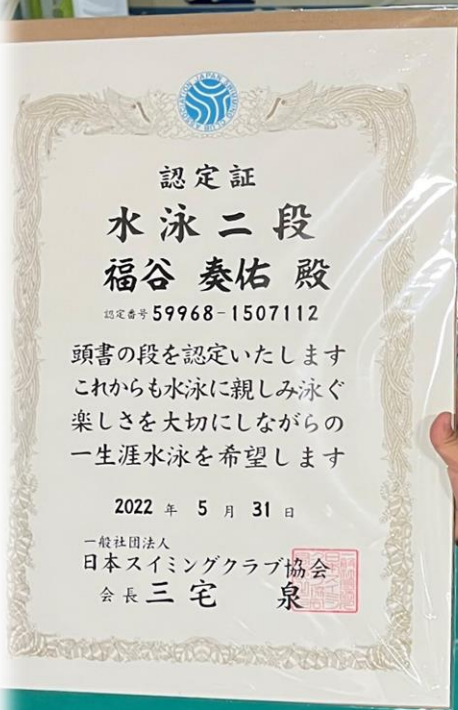 認定証
水泳二段
福谷 奏佑 殿
認定番号 59968-1507112
頭書の段を認定いたします
これからも水泳に親しみ泳ぐ
楽しさを大切にしながらの
一生涯水泳を希望します
2022 年 5 月 31 日
一般社団法人
日本スイミングクラブ協会
会長 三宅 泉